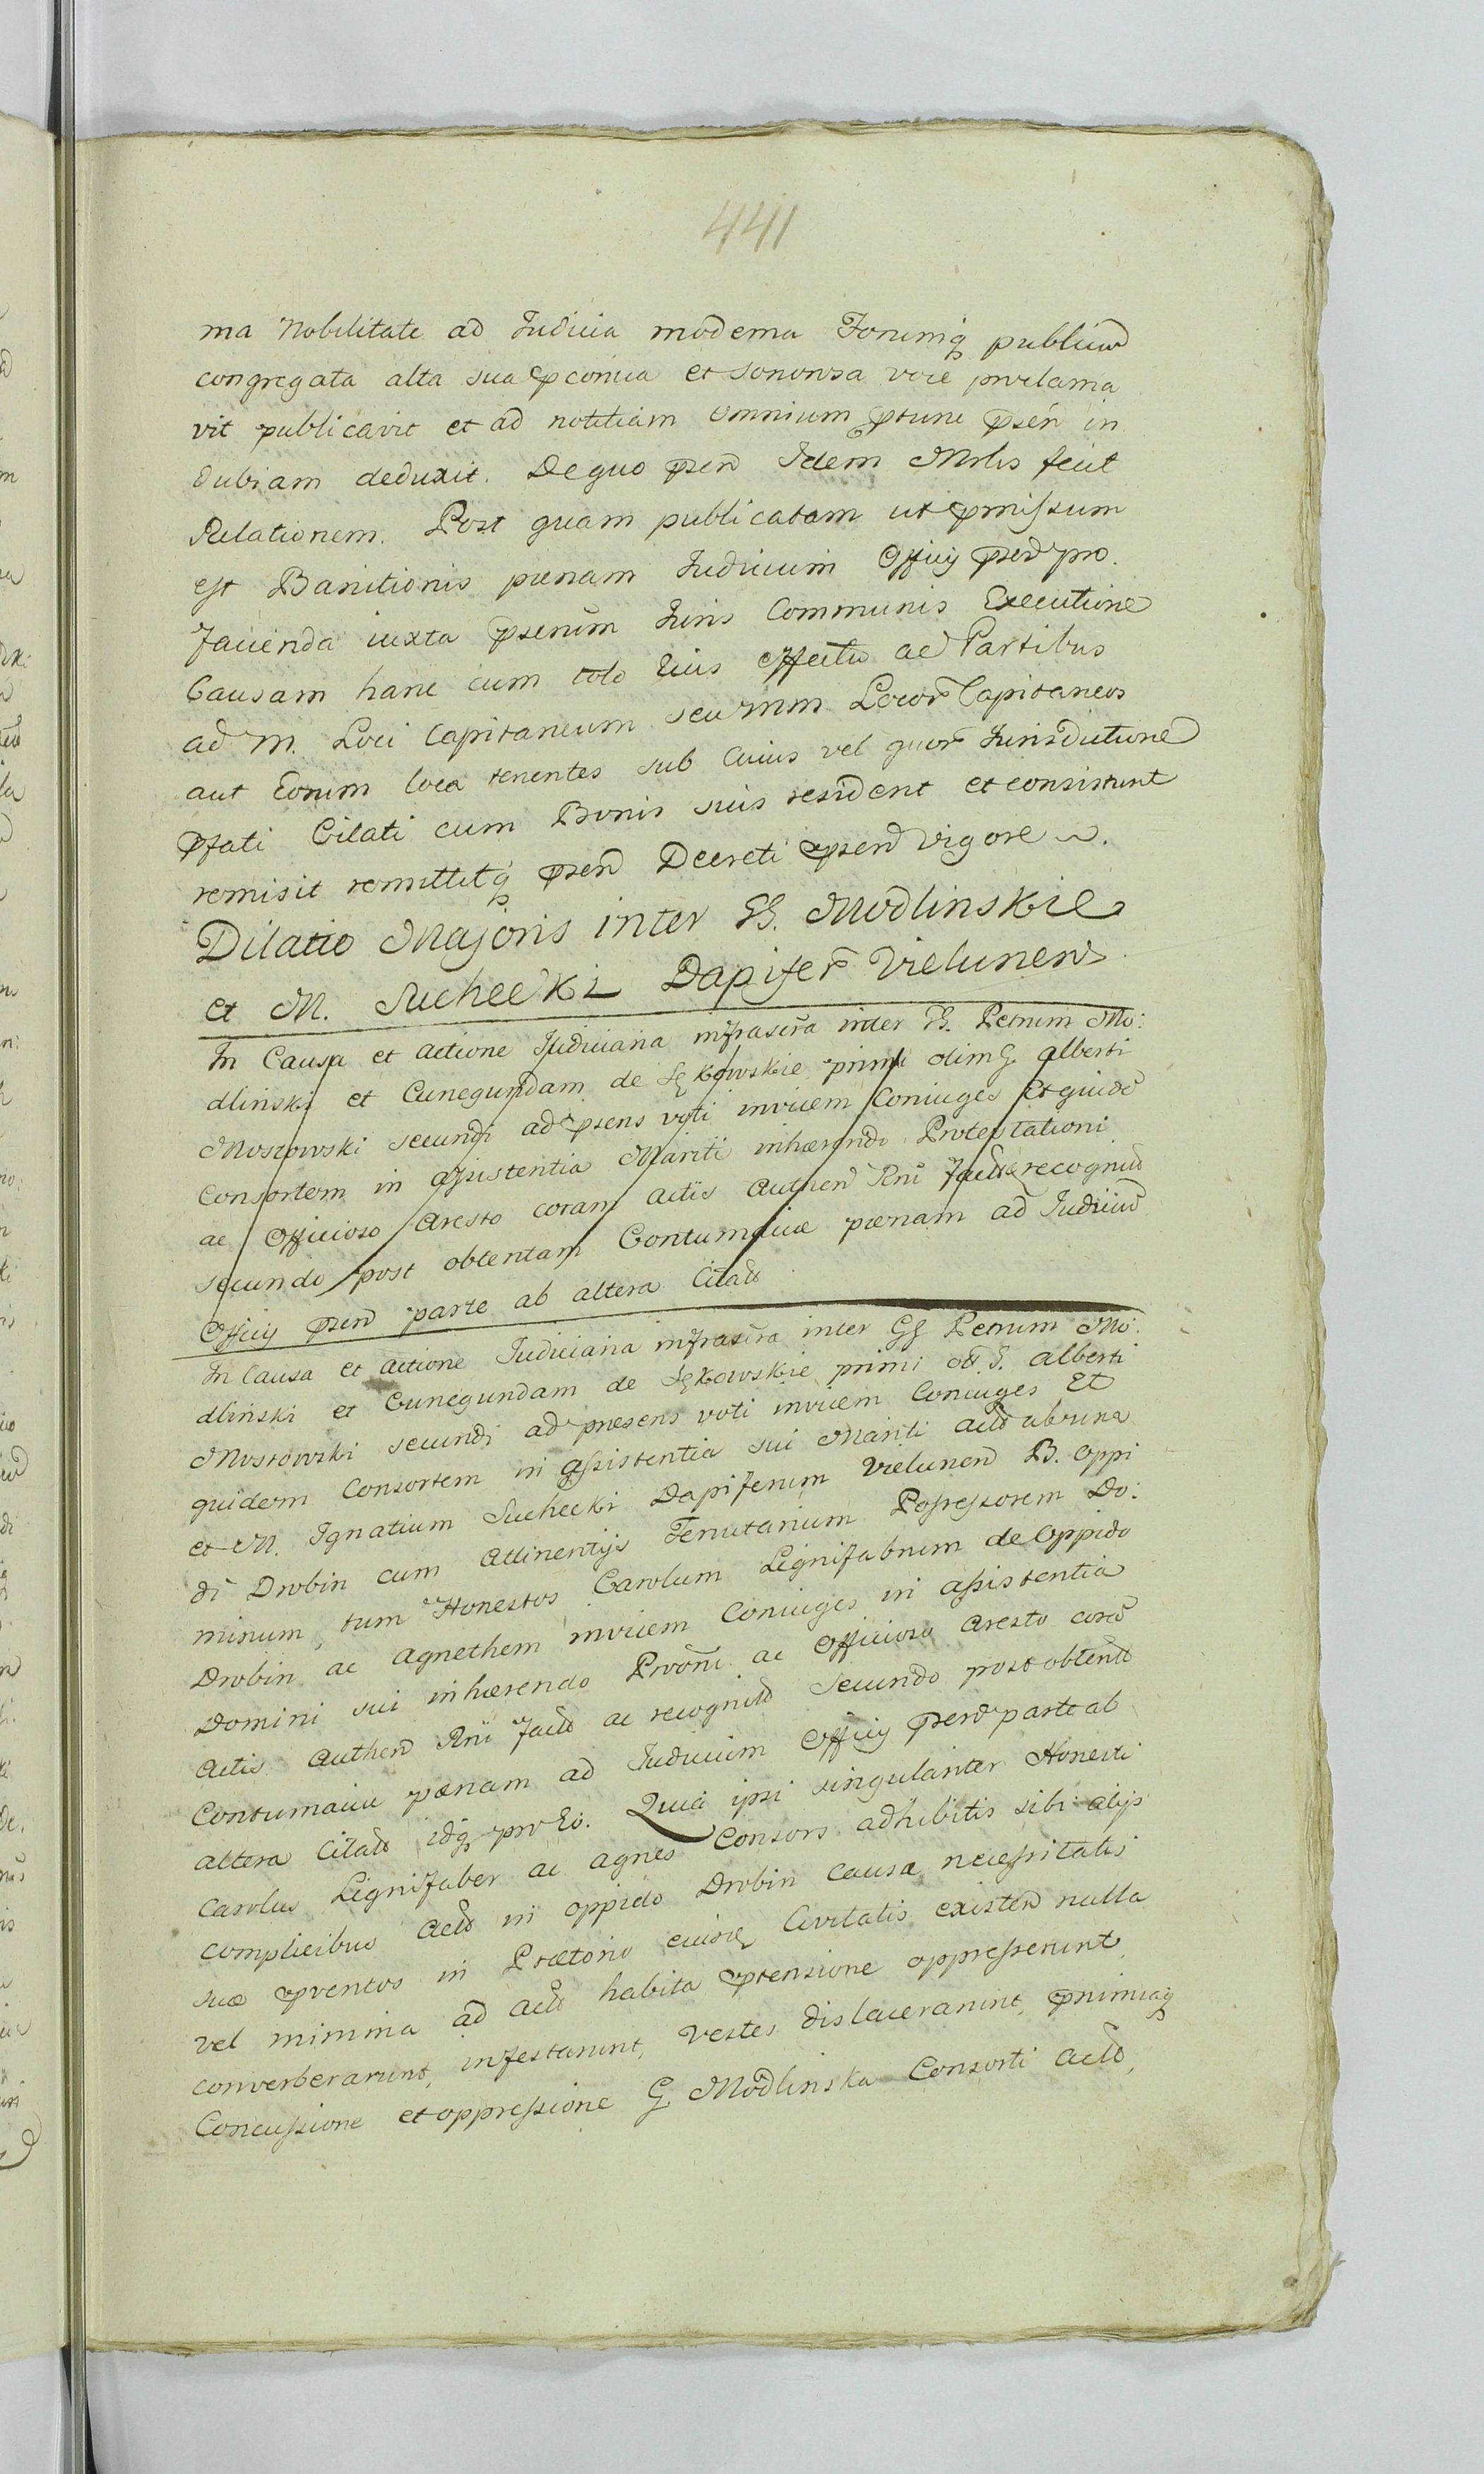 441
ma Nobilitate ad Judicia moderna Forumq publicū
congregata alta sua pconica et sonorosa voce proclama
vit publicavit et ad notitiam omnium ptunc psen in
dubiam deduxit. De quo psen Idem Mrlis fecit
Relationem. Post quam publicatam ut pmissum
est Banitionis pænam Judicium Officij psen pro.
facienda iuxta pserum Juris Communis Executione
Causam hanc cum toto Eius effectu ac Partibus
ad M. Loci Capitaneum seu Mm Locor Capitaneos
aut Eorum loca tenentes sub Cuius vel quor Jurisdictione
pfati Citati cum Bonis suis resident et consistunt
remisit remittitq psen Decreti psen vigore
Dilatio Majoris inter GG. Modlinskie
et M. Suchecki Dapifer Vielunen
In Causa et actione Judiciaria infrascra inter GG. Petrum Mo:
dlinski et Cunegundam de Sękowskie primi olim G. alberti
Mostowski secundi ad psens voti invicem Coniuges Et quidē
Consortem in assistentia Mariti inhærendo Protestationi
ac Officioso Aresto coram actis Authen Rni factis recognitō
secundo post obtentam Contumaciæ pænam ad Judiciū
Officij psen parte ab altera Citatō
In Causa et actione Judiciaria infrascra inter GG Petrum Mo:
dlinski et Cunegundam de Sękowskie primi ol G. alberti
Mostowski secundi ad præsens voti invicem Coniuges Et
quidem Consortem in assistentia sui Mariti actō ab una
et M. Ignatium Suchecki Dapiferum Vielunen B. Oppi
di Drobin cum attinentijs Tenutarium Possessorem Do:
minum, tum Honestos Carolum Lignifabrum de Oppido
Drobin ac Agnethem invicem Coniuges in assistentia
Domini sui inhærendo Prooni ac Officioso Aresto corā
Actis Authen Rni factō ac recognitō secundo post obtentā
Contumaciæ pænam ad Judicium Officij psen parte ab
altera Citatō idq pro Eo. Quia ipsi singulariter Honesti
Carolus Lignifaber ac Agnes Consors adhibitis sibi alijs
complicibus Actō in Oppido Drobin causa necessitatis
suæ pventos in Prætorio eiusq Civitatis existen nulla
vel minima ad actō habita ptensione oppresserunt,
converberarunt, infestarunt, vestes dislacerarunt, pnimiaq
Concussione et oppressione G. Modlinska Consorti actō,